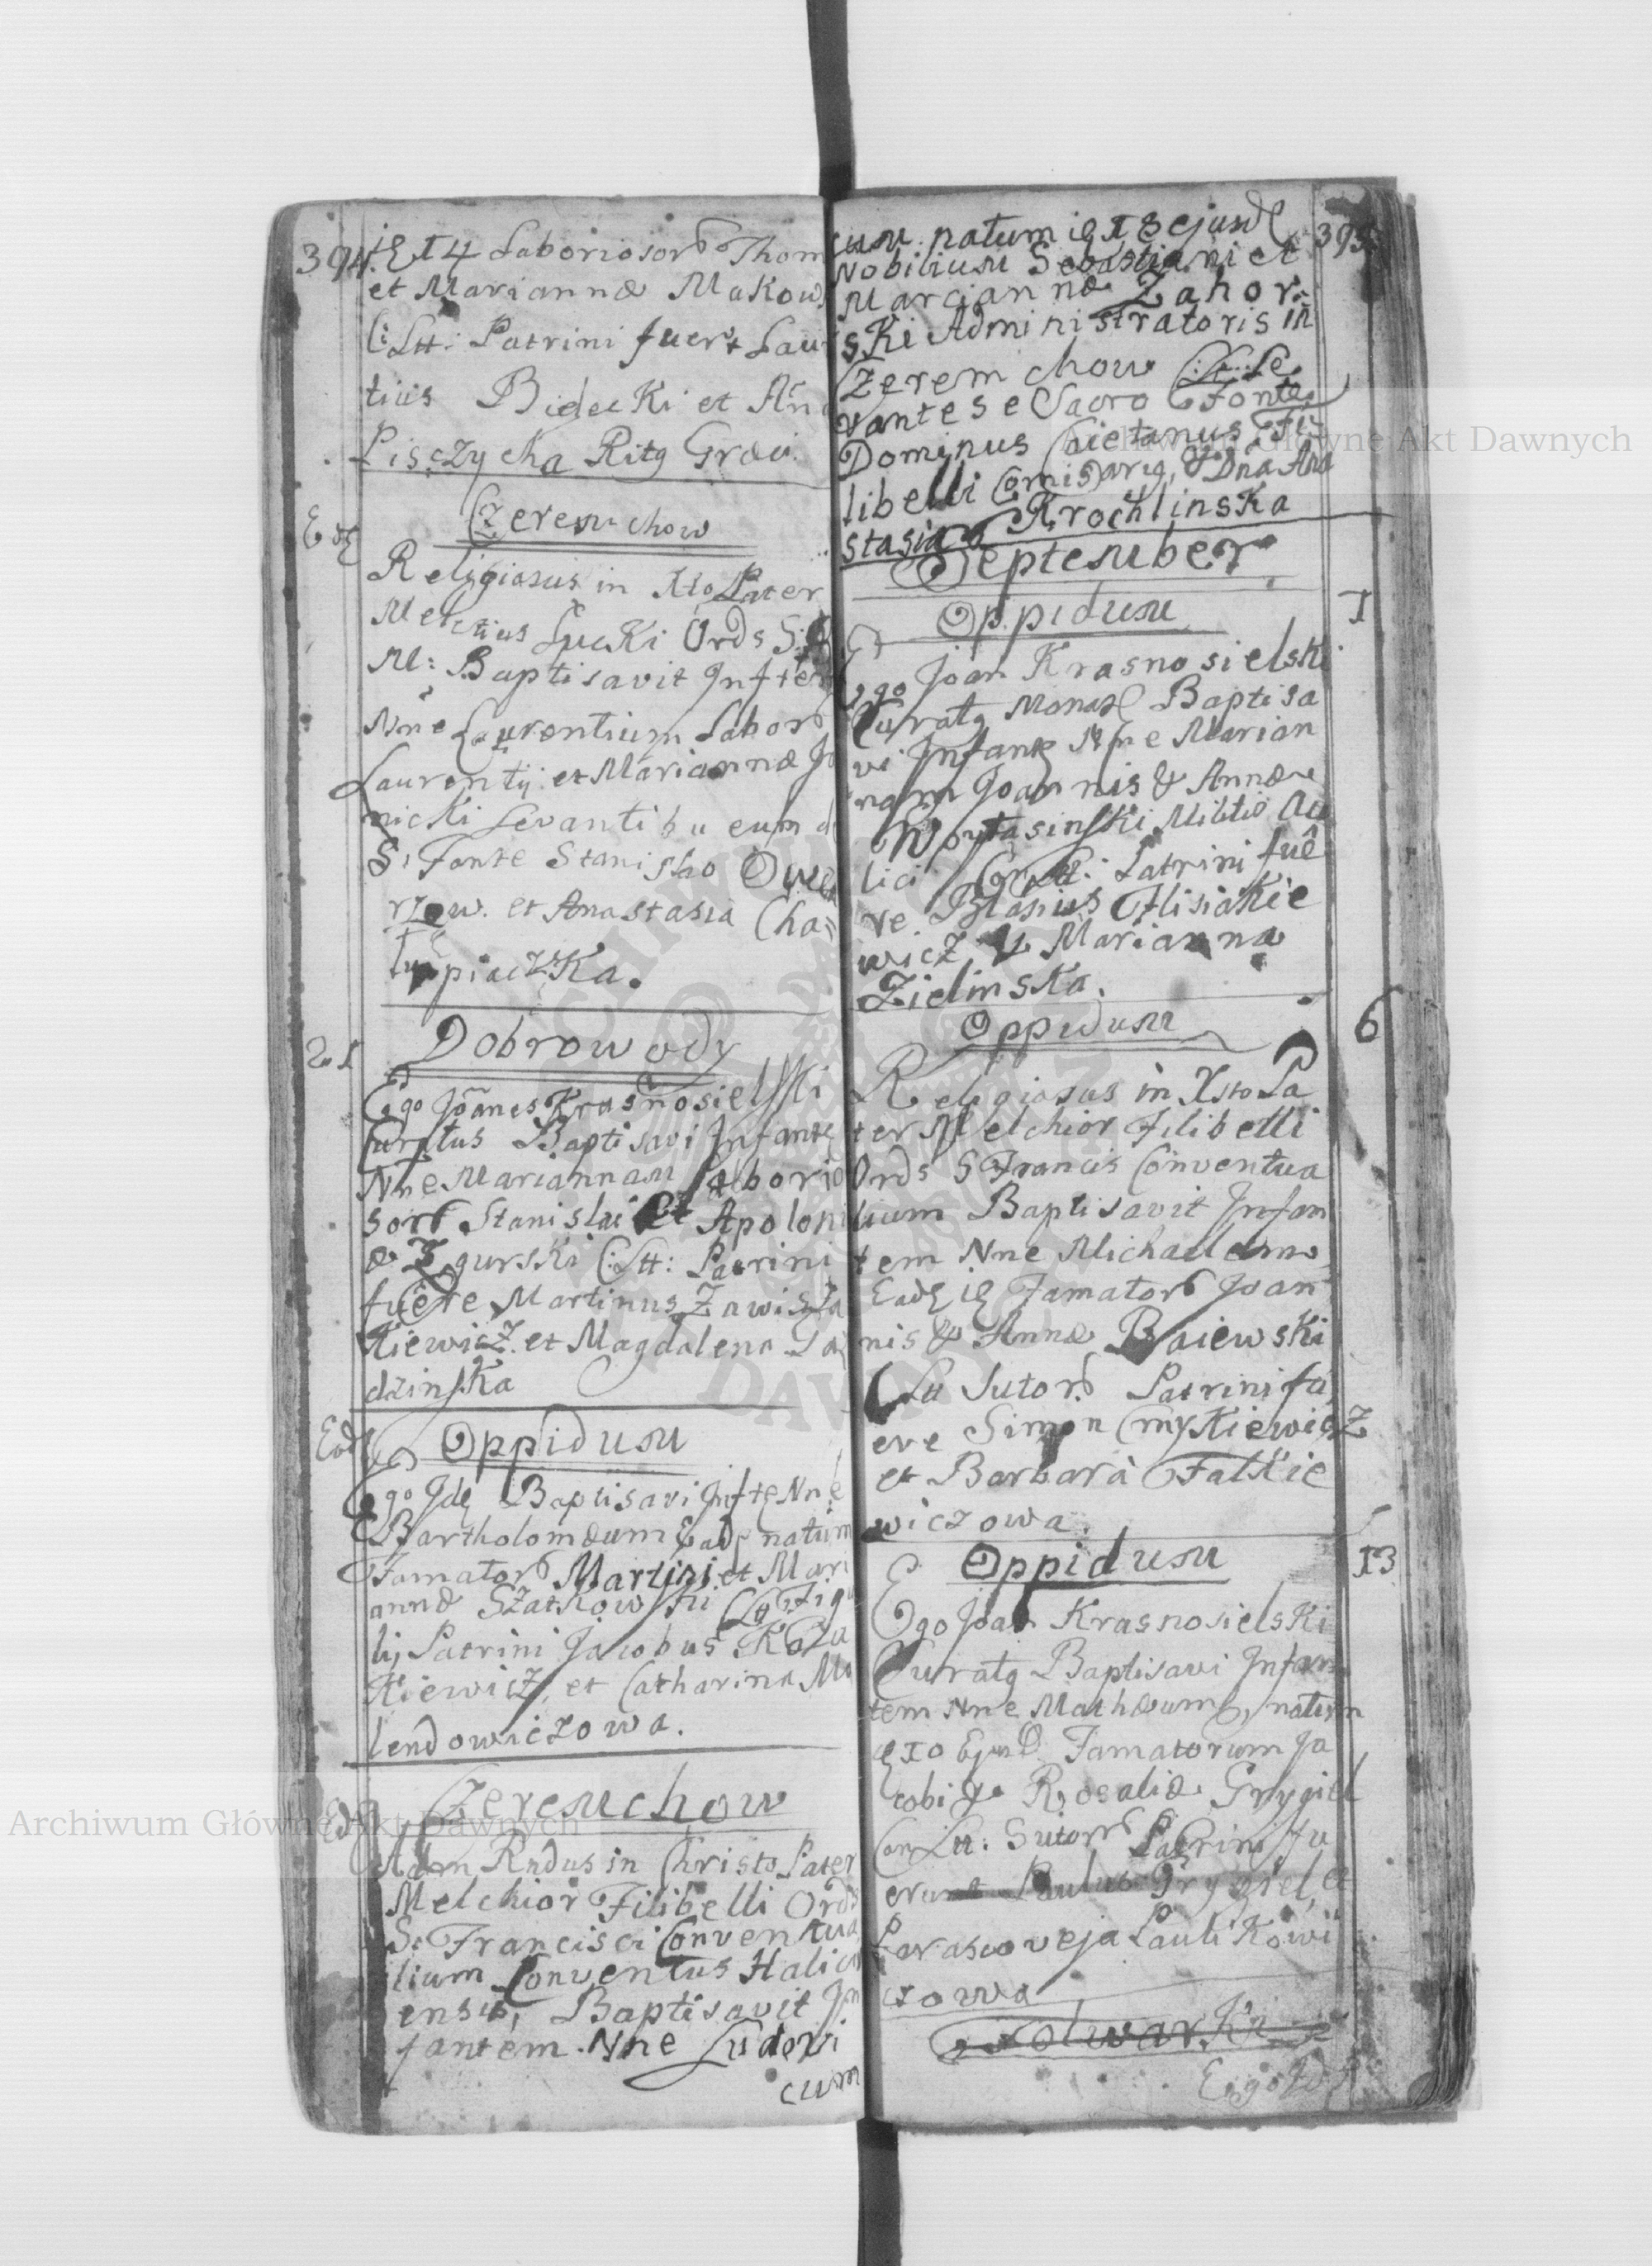 394.
ię 14 Laboriosorƀ Thom
et Mariannæ Makows
C:Ltt: Patrini fuert Lau
tius Bidecki et An
Pisczycha Ritg Græci.
Eodę
Czeremchow
Religiosus in Xto Pater
Melchius Łucki Ords S:
M: Baptisavit Inftem
Nne Laurentium Laborƀ
Laurentij et Mariannæ Ja
nicki Levantibu eum d
S. Fonte Stanislao Owcz
rzow. et Anastasia Cha=
łupiaczka.
21
Dobrowody
Ego Joannes Krasnosielski
Curatus Baptisavi Infantę
Nne Mariannam Laborio
sorƀ Stanislai Et Apoloni
æ Zgurski C:Ltt: Patrini
fuêre Martinus Zawisza
Kiewicz. et Magdalena Ła
dzinska
Eodę
Oppidum
Ego Idę Baptisavi Inftę Nne
Bartholomæum Eadę natum
Famatorƀ Martini et Mari
annæ Szatkowski C Ltt Figu
lij Patrini Jacobus Koza
Kiewicz, et Catharina Ma
lendowiczowa.
Eodę
Czeremchow
Adm Rndus in Christo Pater
Melchior Filibelli Ords
S. Francisci Conventua
lium Conventus Halici
ensis, Baptisavit In
fantem Nne Ludovi
cum
395
cum natum ię 18 ejusdę
Nobilium Sebastiani et
Mariannæ Zahor=
ski Administratoris in
Czeremchow C:Ltt: Le
vantes e Sacro Fonte
Dominus Caietanus Fi=
libelli Comisarig, & Dna Ana
stasia Krochlinska
September
1
Oppidum
Ego Joan Krasnosielski
Curatg Monas Baptisa
vi Infantę Nne Marian
nam Joannis & Annæ
Woytasinski Militis Au
lici Con Ltt: Patrini fuê
re Blasius Flisiakie
wicz & Marianna
Zielinska.
6
Oppidum
Religiosus in Xsto Pa
ter Melchior Filibelli
Ords S Francis Conventua
lium Baptisavit Infan
tem Nne Michaelem
Eadę ię Famatorƀ Joan
nis & Annæ Baiewski
C Ltt Sutorƀ Patrini fu
ere Simon Cmykiewicz
et Barbara Fatkie
wiczowa.
13
Oppidum
Ego Joan Krasnosielski
Curatg Baptisavi Infan
tem Nne Mathæum, natum
ę 10 Ejusd. Famatorum Ja
cobi & Rosaliæ Grygiel
Con Ltt: Sutorƀ Patrini fu
erunt Paulus Grygiel et
Parascoveja Paulikowi
czowa
Folwarki
Ego Id